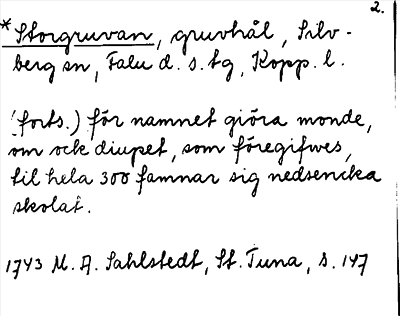 2.
* Storgruvan, gruvhål, Silv-
berg sn, Falu d. s. tg, Kopp. l.
(forts.) för namnet giöra monde,
om ock diupet, som föregifwes,
til hela 300 famnar sig nedsencka
skolat.
1743 M. A. Sahlstedt, St. Tuna, s. 147